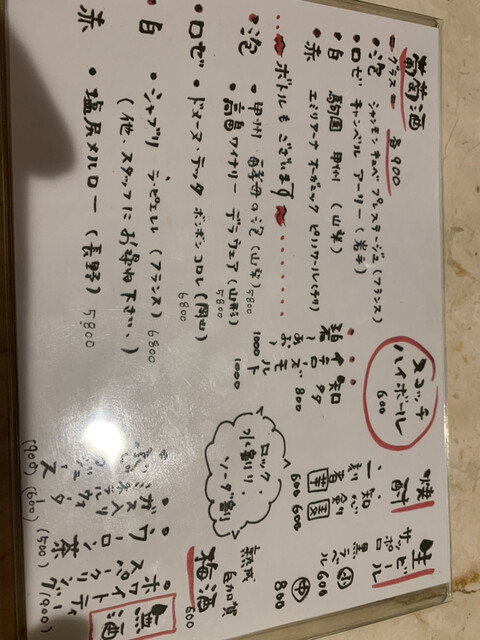 葡萄酒
グラス 各900
・泡 シャンモン キュベ プレステージュ (フランス)
・ロゼ キャンベル アーリー (岩手)
・白 駒園 甲州 (山梨)
・赤 エミリアーナ オーガニック ピノノワール(チリ)
ボトルもございます
・泡 ・甲州 酵母の泡 (山梨) 5800
・高畠ワイナリー デラウェア (山形) 5800
・ロゼ ・ドメーヌ・テッタ ボンボンコロレ (岡山) 6800
・白 ・シャブリ ラピエレル (フランス) 6800
(他、スタッフにお尋ね下さい。)
赤 ・塩尻メルロー (長野) 5800
スコッチ
ハイボール
600
・知多 800
・チーズモルト 1000
・碧 (あお) 1000
焼酎
一刻者 芋 600
知心剣 麦 600
ロック・
水割り・
ソーダ割
生ビール
サッポロ
黒ラベル
小 600
中 800
梅酒
600
熟成
白加賀
無酒
・ホワイト
スパークリング (900)
・ウーロン茶 (500)
・ガス入り
ミネラルウォーター (600)
ジュース (900)